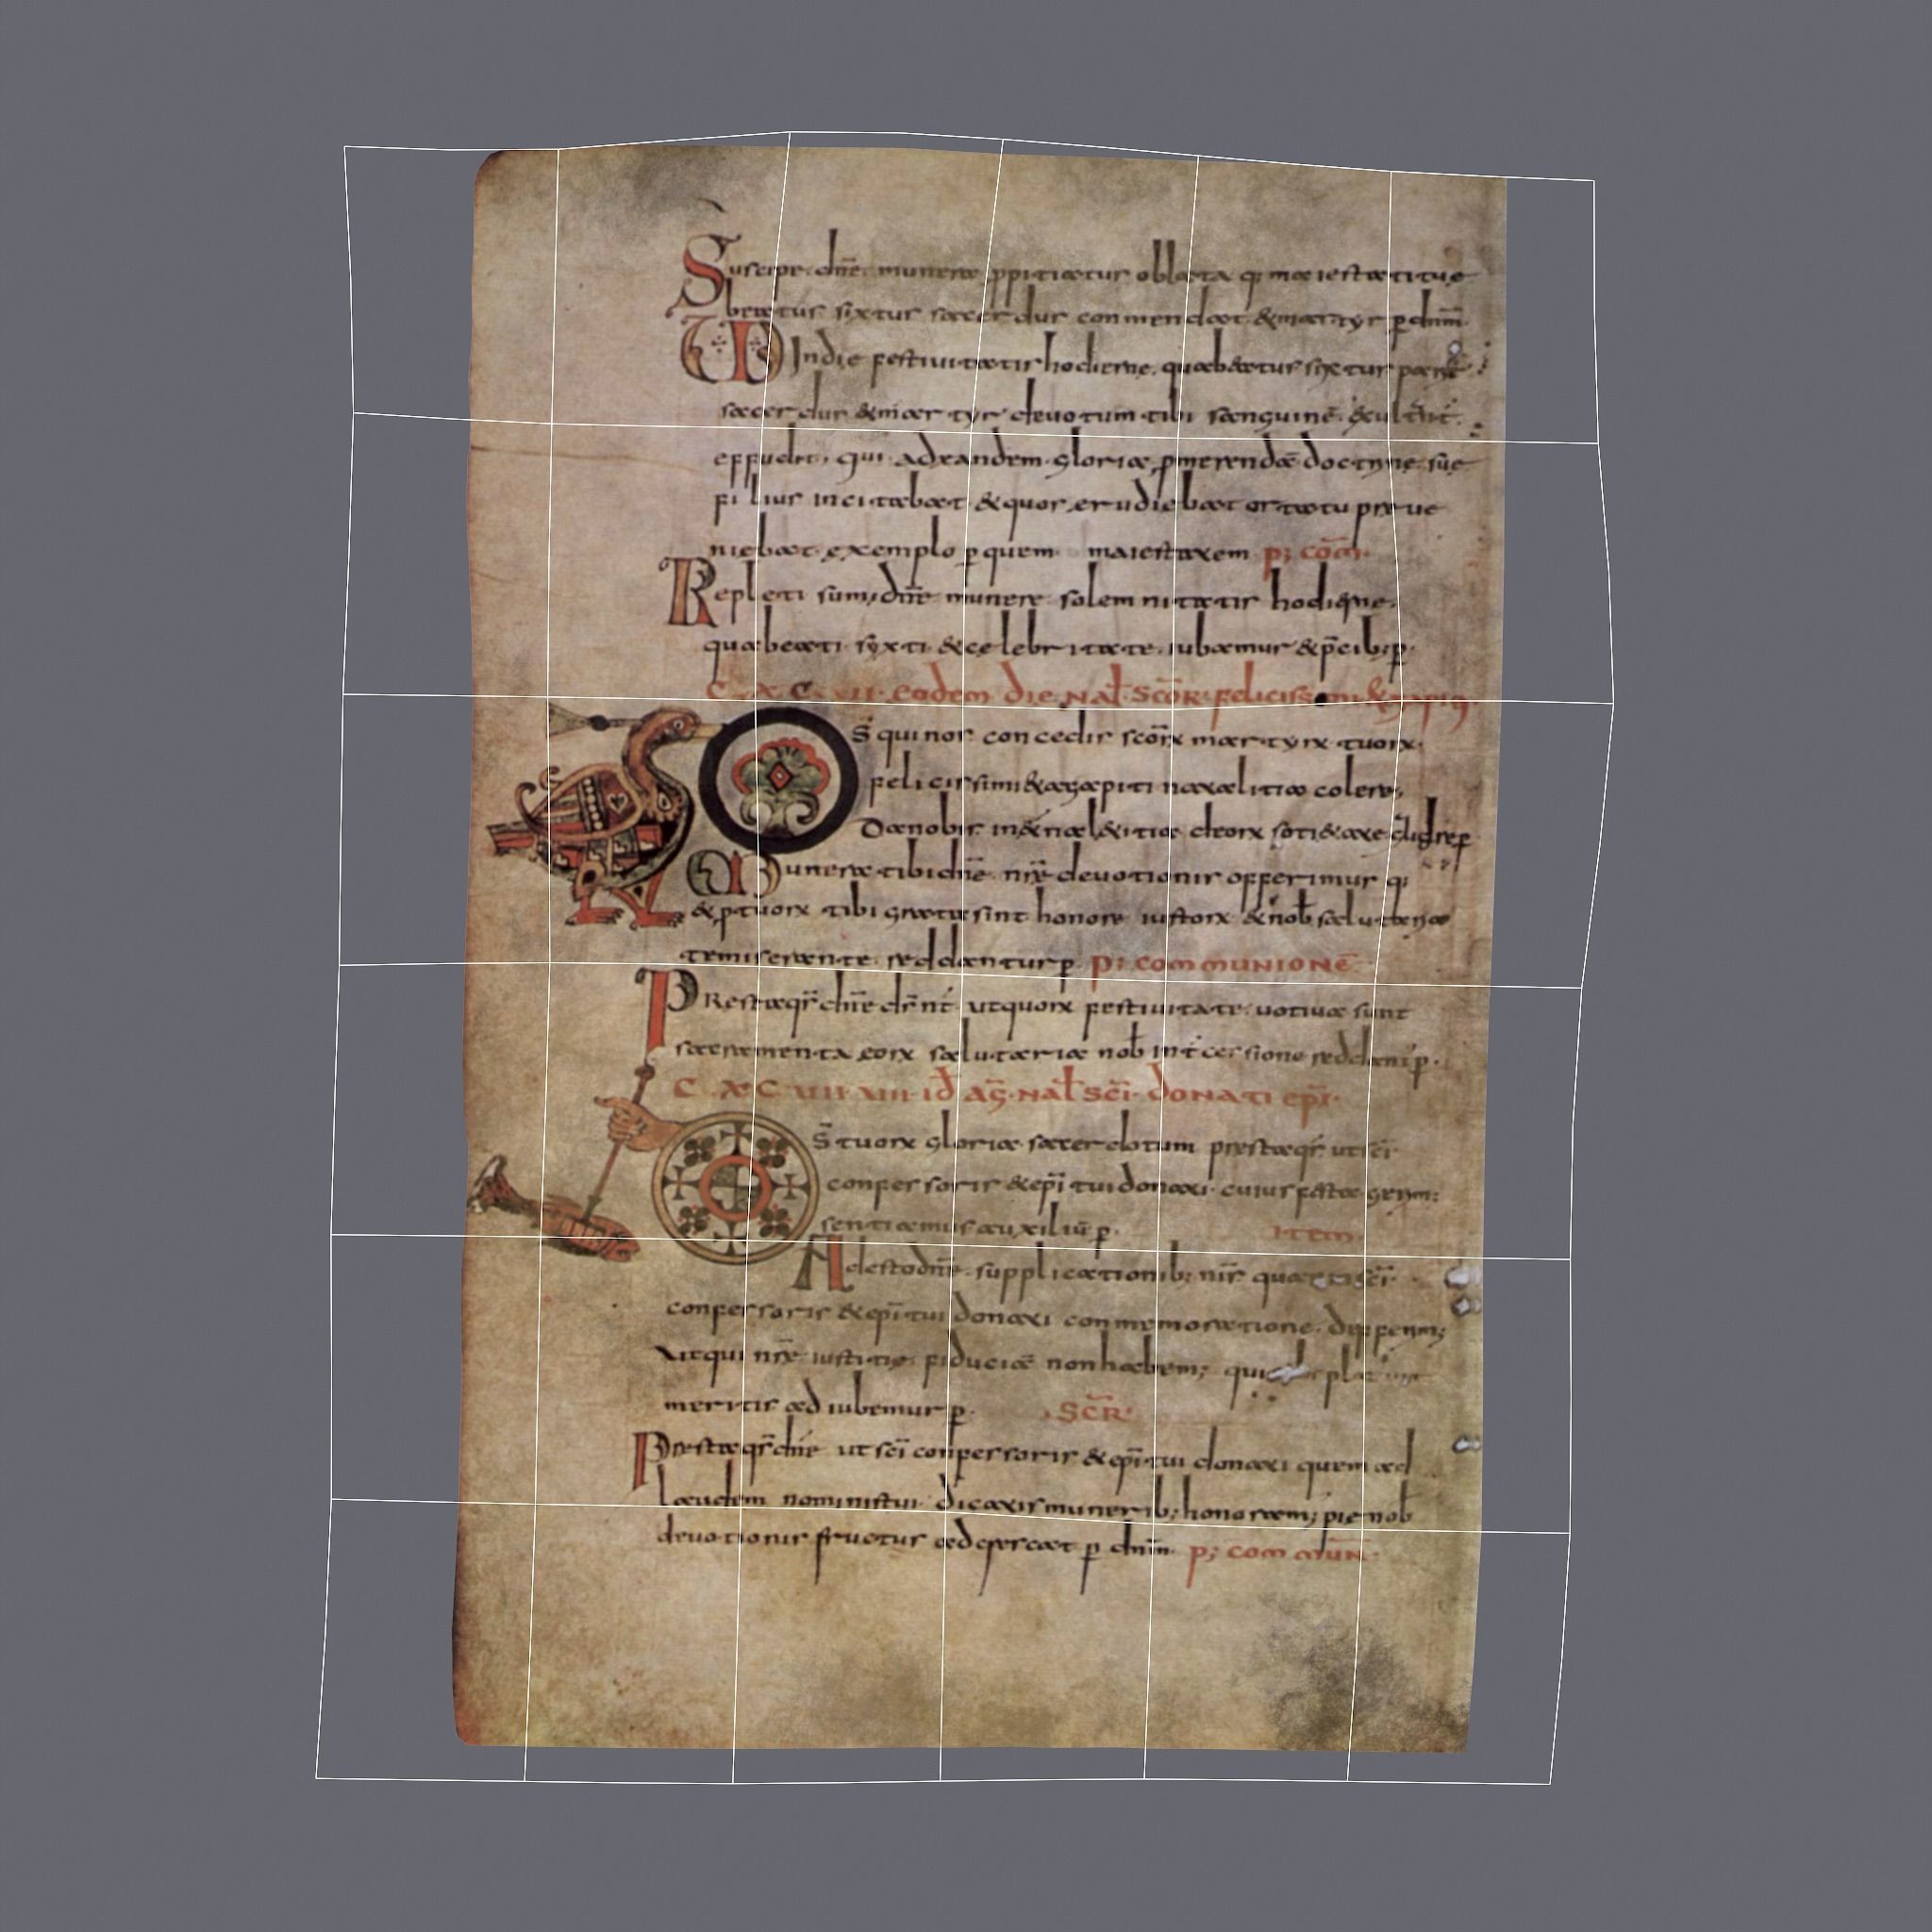 Suscipe dñe munera ppitiatus oblata q; maiestati tue
beatus sixtus sacerdus conmendat & martyr p dnm̄
VD In die festiuitatis hodierne. qua beatus sixtus
sacerdus & martyr deuotum tibi sanguinē
effudit, qui ad eandem gloriā pmerendā doctrine sue
filius incitabat & quos erudiebat ortatu preue
niebat exemplo p quem maiestatem p; com̄
Repleti sum; dñe munere solemnitatis hodierne
qua beati syxti & celebritate iubamur & p̄cib; p
C XC VII eodem die nat̄ scōr felicissimi &
D̄s qui nos concedis scōrx martyrx tuorx
felicissimi & agapiti natalitia colere
Da nobis in
Munera tibi dñe nrē deuotionis offerimus q;
& p tuorx tibi grata sint honore iustorx & nob̄ salutaria
te miserante reddantur p p; communionē
Presta qs̄ dñe ds̄ nr̄ ut quorx festiuitate uotiua sunt
sacramenta eorx salutaria nob̄ int̄cessione reddant p
C XC VIII VIII id aḡ nat̄ sc̄i donati ep̄i
D̄s tuorx gloria sacerdotum presta qs̄ ut sc̄i
confessoris & ep̄i tui donati cuius festa gerim;
sentiamus auxiliū p Item
Adesto dñe supplicationib; nr̄is
confessoris & ep̄i tui donati conmemoratione
Ut qui nrē iustitie fiduciā non habem;
meritis adiubemur p SCR
Presta qs̄ dñe ut sc̄i confessoris & ep̄i tui donati quem ad
laudem nominis tui dicatis munerib; honoram; pie nob̄
deuotionis fructus adcrescat p dnm̄ p; commun̄